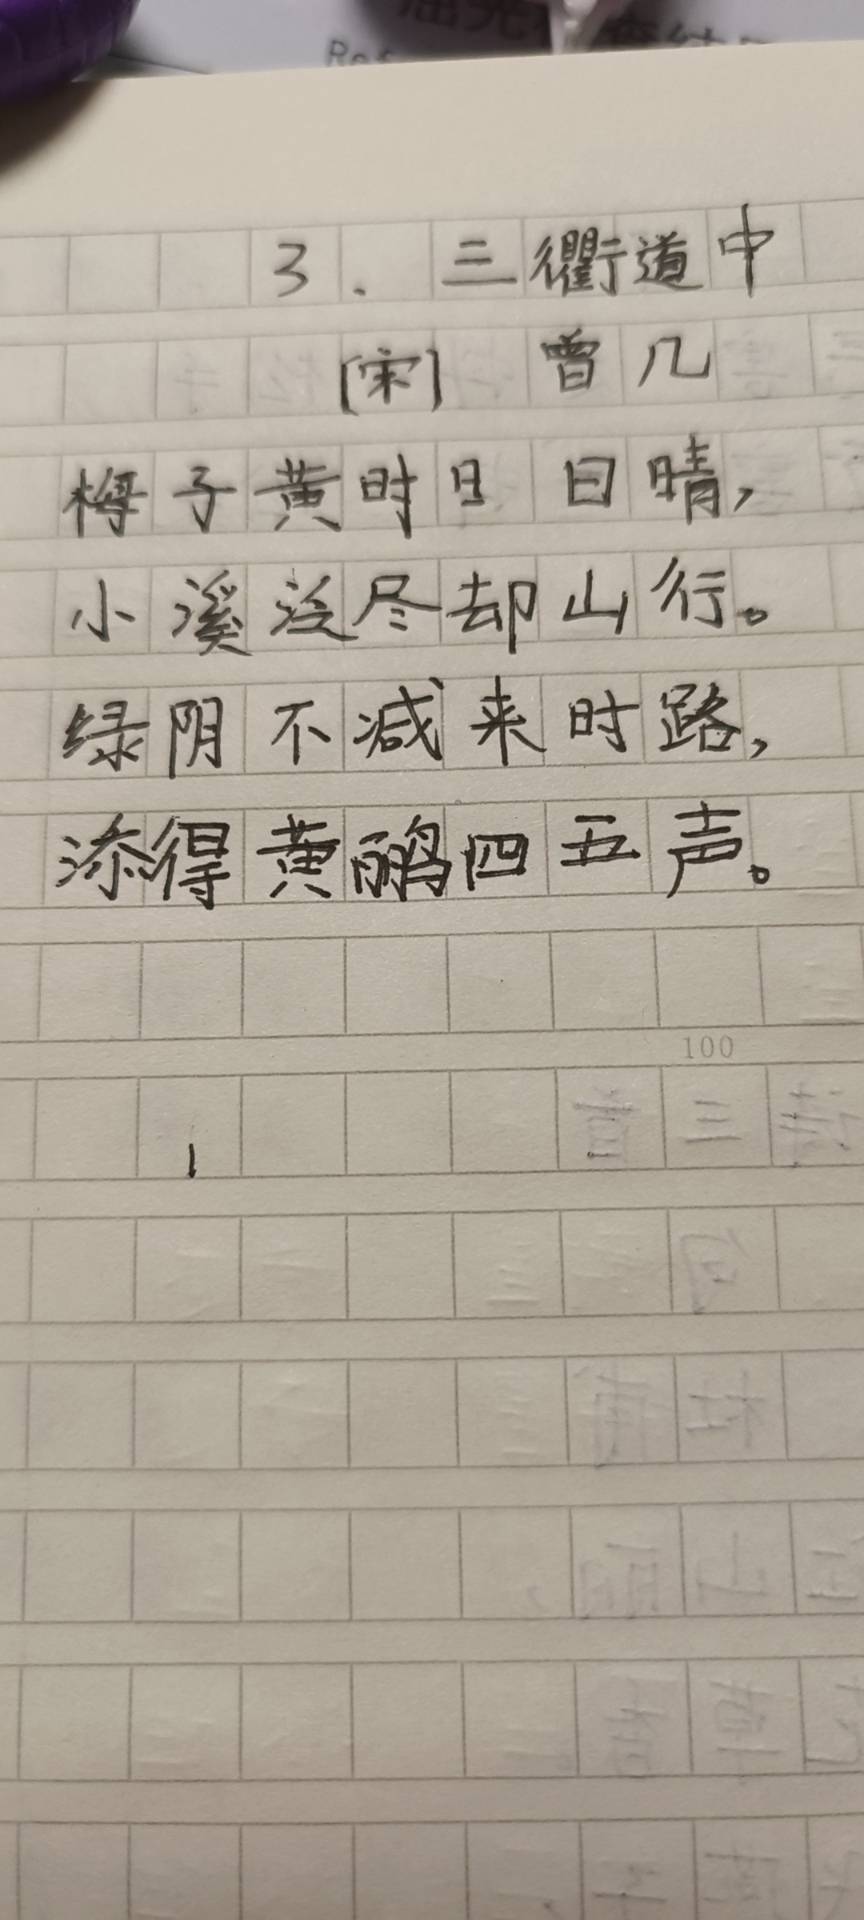 3.三衢道中
[宋] 曾几
梅子黄时日日晴，
小溪泛尽却山行。
绿阴不减来时路，
添得黄鹂四五声。
100